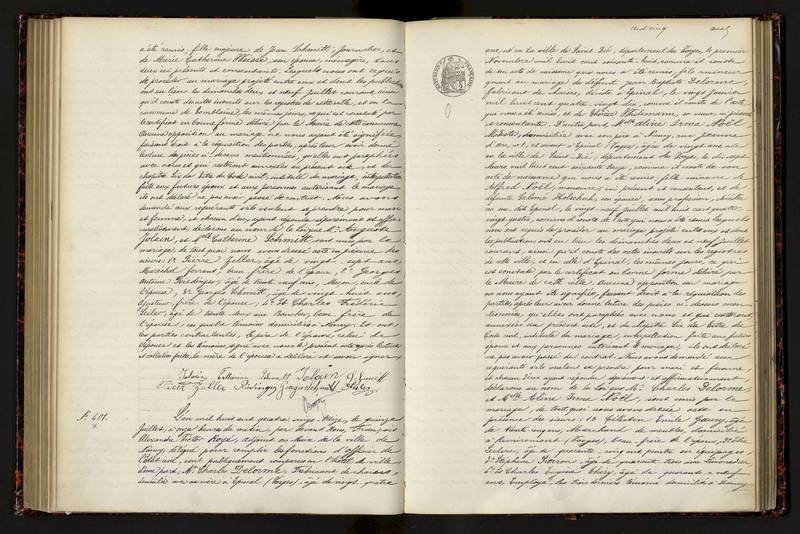 a été remis, fille majeure de Jean Schmitt, journalier, et
de Marie Catherine son épouse, ménagère, tous
deux ici présents et consentants. Lesquels nous ont requis
de procéder au mariage projeté entre eux et dont les publications
ont eu lieu les dimanches deux et neuf juillet courant, ainsi
qu'il conste des actes inscrits sur les registres de cette ville, et en la
commune de les mêmes jours, ce qui est constaté par
le certificat en bonne forme délivré par le Maire de cette commune
Aucune opposition au mariage ne nous ayant été signifiée
faisant droit à la réquisition des parties, après leur avoir donné
lecture des pièces ci-dessus mentionnées, qu'elles ont paraphées
avec nous et qui resteront annexées au présent acte, et du
chapitre six du titre du Code civil, intitulé du mariage, interpellation
faite aux futurs époux et aux personnes autorisant le mariage
ils ont déclaré ne pas avoir passé de contrat. Nous avons
demandé aux requérants s'ils veulent se prendre pour mari
et femme, et chacun d'eux ayant répondu séparément et affir-
mativement, déclarons au nom de la Loi que Mr Auguste
Jolain, et Dlle Catherine Schmitt sont unis par le
mariage, de tout quoi nous avons dressé acte en présence des
sieurs: 1° Pierre Geller, âgé de vingt sept ans,
Maréchal ferrant, beau frère de l'époux, 2° Georges
Antoine âgé de trente neuf ans, Maçon, oncle de
l'épouse, 3° Georges Schmitt, âgé de vingt huit ans,
Ajusteur, frère de l'épouse, 4° Charles Frédéric
âgé de trente deux ans, beau frère de
l'épouse, ces quatre témoins domiciliés à Nancy. Et ont
les parties contractantes, le père de l'épouse
et les témoins, signé avec nous le présent acte après lecture
et collation faite, la mère de l'épouse a déclaré ne savoir signer
Jolain Catherine Jolain Schmitt
Geller Georges Schmitt
N. 401.
L'an mil huit cent quatre vingt treize, le quinze
juillet, à onze heures du matin, par devant Nous, François
Alexandre Victor Royé, adjoint au Maire de la ville de
Nancy, délégué pour remplir les fonctions d'officier de
l'état civil, ont publiquement comparu en l'hôtel de ville
d'une part, Mr Charles Delorme, Fabricant de chaises,
domicilié avec sa mère à Epinal (Vosges), âgé de vingt quatre
ans, né en la ville de Saint Dié, département des Vosges, le premier
Novembre mil huit cent soixante huit, comme il conste
de son acte de naissance que nous a été remis, fils mineur
quant au mariage de défunt Jean Baptiste Delorme
fabricant de chaises, décédé à Epinal, le vingt janvier
mil huit cent quatre vingt dix, comme il conste de l'acte
qui nous a été remis, et de Thérèse sa veuve, ici présente
et consentante. D'autre part, Mlle Aline Irma Noël
Modiste, domiciliée avec son père à Nancy, rue Jeanne
d'Arc, et avant à Epinal (Vosges), âgée de vingt ans, née
en la ville de Saint Dié, département des Vosges, le dix sept
Mars mil huit cent soixante treize, comme il conste de son
acte de naissance que nous a été remis, fille mineure de
Alfred Noël, ici présent et consentant, et de
défunte son épouse, sans profession, décédée
au dit Epinal, le vingt neuf juillet mil huit cent quatre
vingt quatre, comme il conste de l'acte qui nous a été remis. Lesquels
nous ont requis de procéder au mariage projeté entre eux et dont
les publications ont eu lieu les dimanches deux et neuf juillet
courant, ainsi qu'il conste des actes inscrits sur les registres
de cette ville, et en la ville d'Epinal, les mêmes jours, ce qui
est constaté par le certificat en bonne forme délivré par
le Maire de cette ville. Aucune opposition au mariage
ne nous ayant été signifiée, faisant droit à la réquisition des
parties, après leur avoir donné lecture des pièces ci-dessus men-
tionnées, qu'elles ont paraphées avec nous et qui resteront
annexées au présent acte, et du chapitre six du titre du
Code civil, intitulé du mariage, interpellation faite aux futurs
époux et aux personnes autorisant le mariage, ils ont déclaré
ne pas avoir passé de contrat. Nous avons demandé aux
requérants s'ils veulent se prendre pour mari et femme
et chacun d'eux ayant répondu séparément et affirmativement
déclarons au nom de la Loi que Mr Charles Delorme,
et Mlle Aline Irma Noël, sont unis par le
mariage, de tout quoi nous avons dressé acte en
présence des sieurs: 1° Célestin Emile âgé
de trente cinq ans, Marchand de meubles, domicilié
à Remiremont (Vosges), beau frère de l'époux, 2°
Leclerc, âgé de quarante cinq ans,
3° Stéphane âgé de quarante trois ans,
4° Charles Eugène Thiéry, âgé de quarante neuf
ans, Employé, les trois derniers témoins domiciliés à Nancy